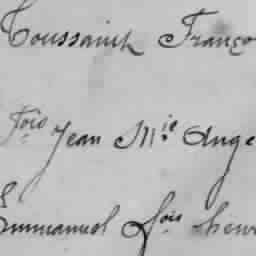 Toussaint Franço
fois Jean Mie Ange
Emmanuel fois henr